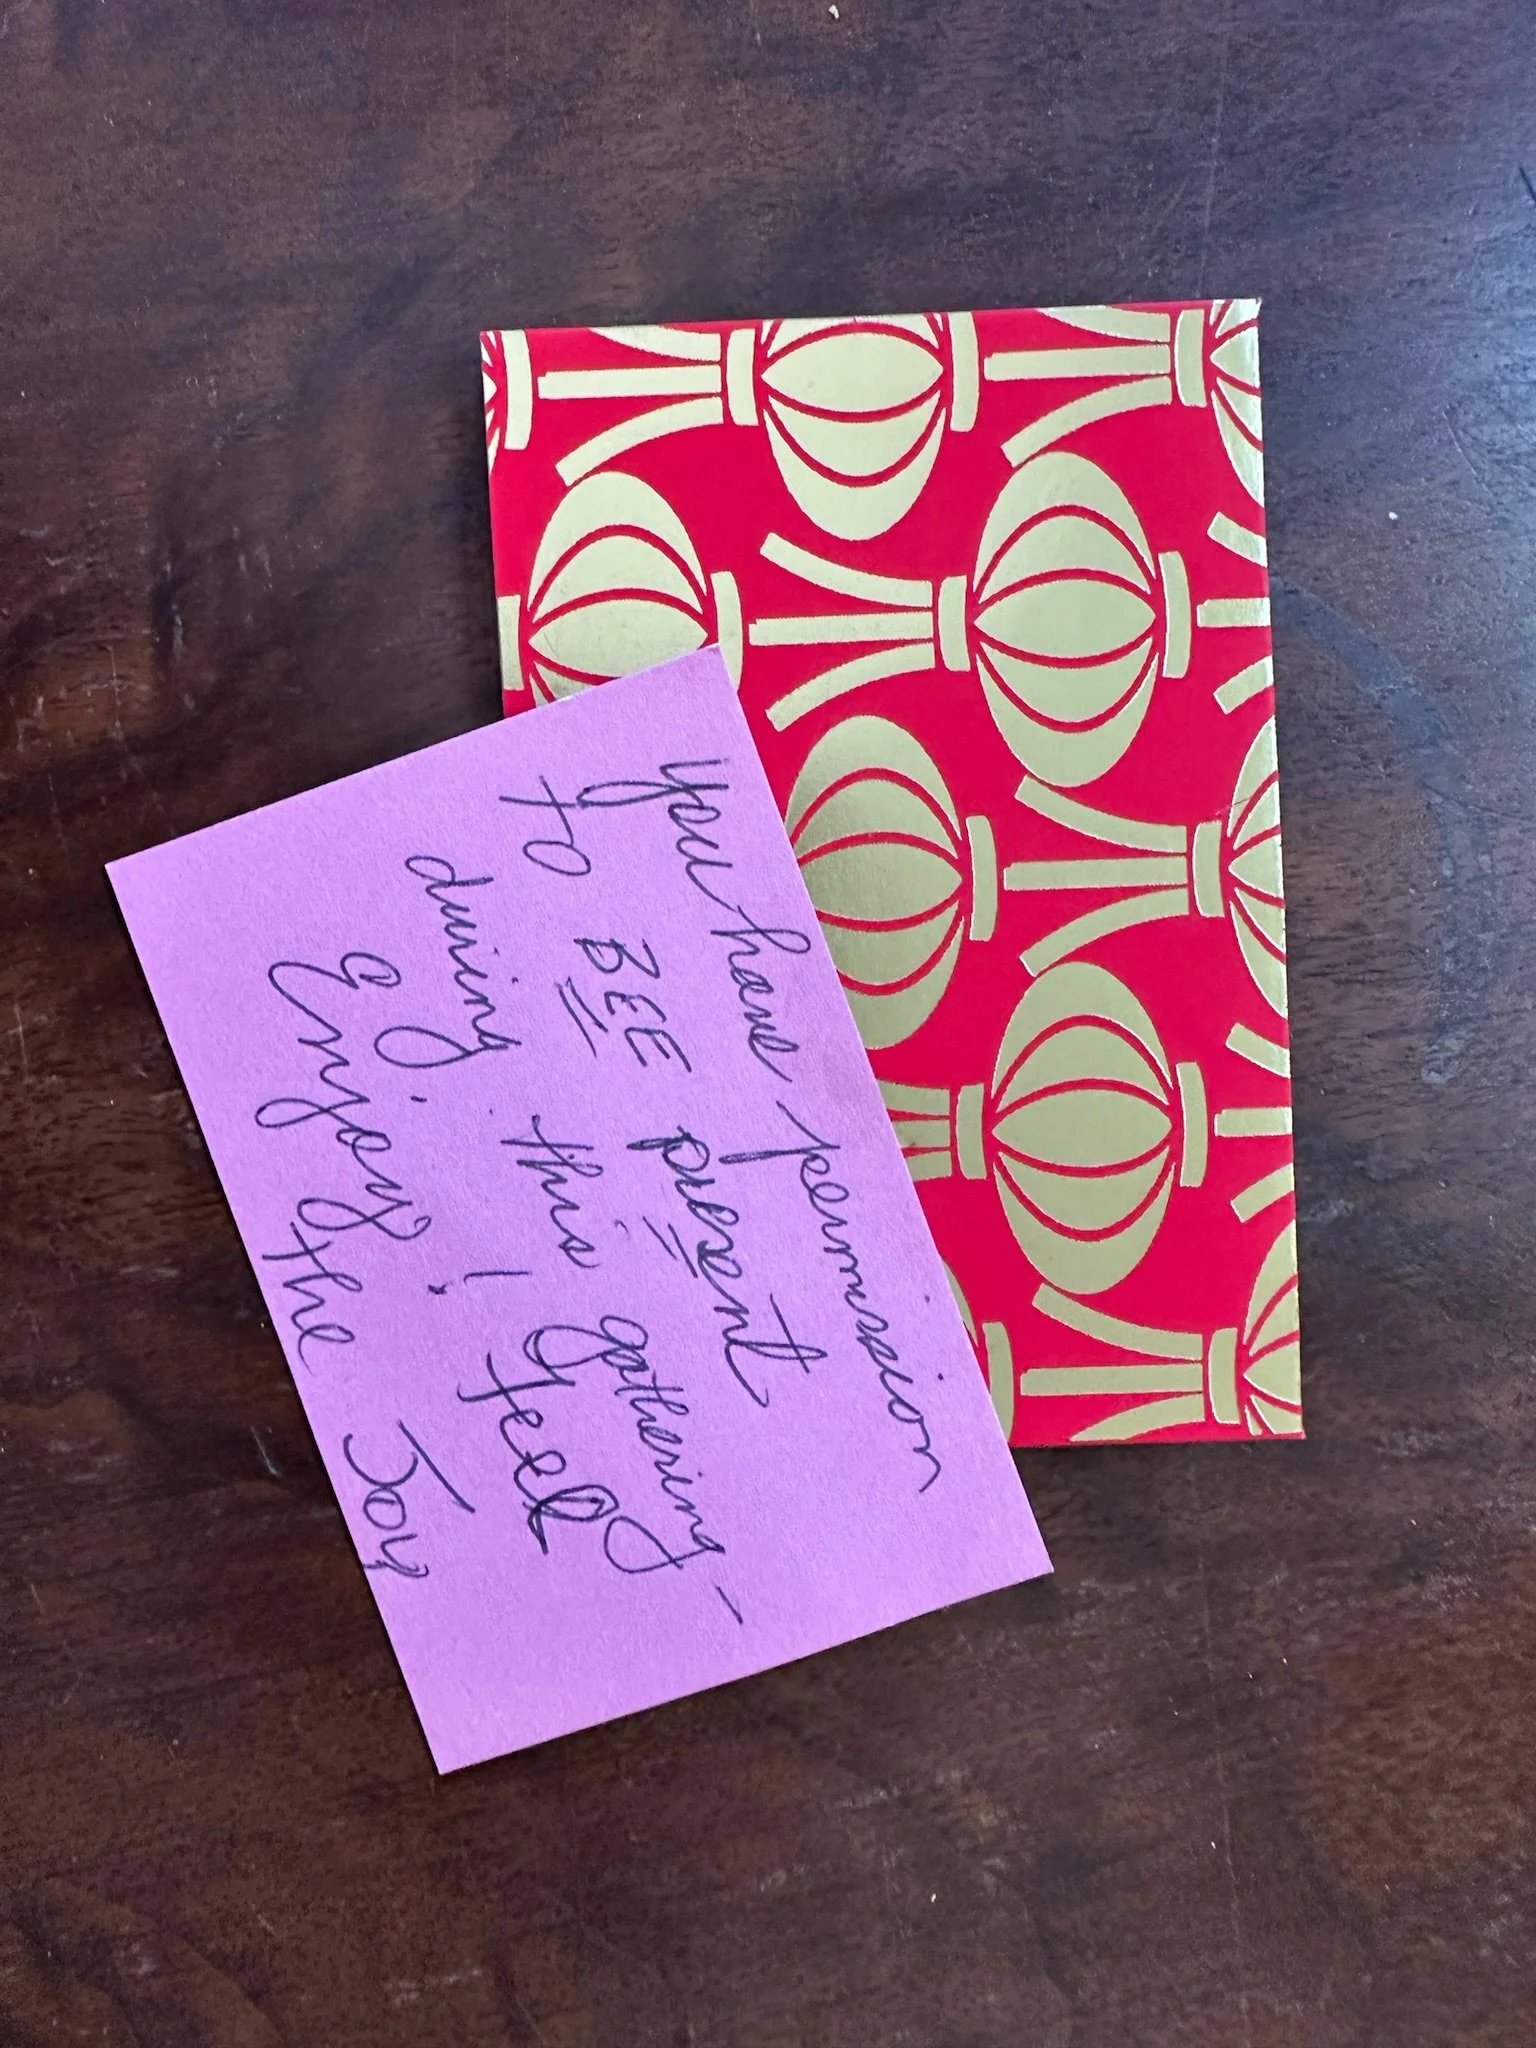 You have permission
to BEE present
during this gathering -
Enjoy! Feel
the Joy